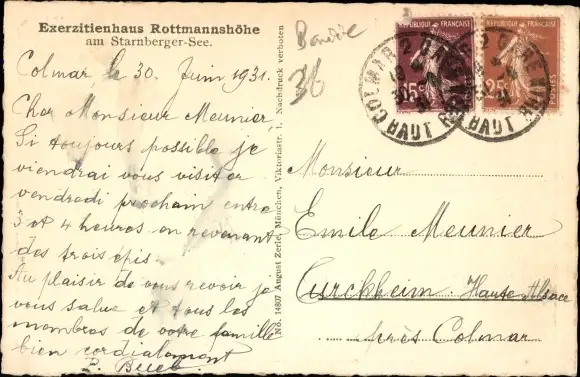 Exerzitienhaus Rottmannshöhe
am Starnberger-See.
Colmar, le 30. Juin 1931.
Cher Monsieur Meunier
Si toujours possible je
viendrai vous visiter
vendredi prochain entre
3 et 4 heures en revenant
des trois épis.
Au plaisir de vous revoir je
vous salue et tous les
membres de votre famille
bien cordialement
No. 14807 August Zerle, München, Viktoriastr. 1. Nachdruck verboten
36
REPUBLIQUE FRANÇAISE
15c
REPUBLIQUE FRANÇAISE
25c
POSTES
COLMAR
HAUT RHIN
Monsieur
Emile Meunier
Turckheim. Haute Alsace
près Colmar